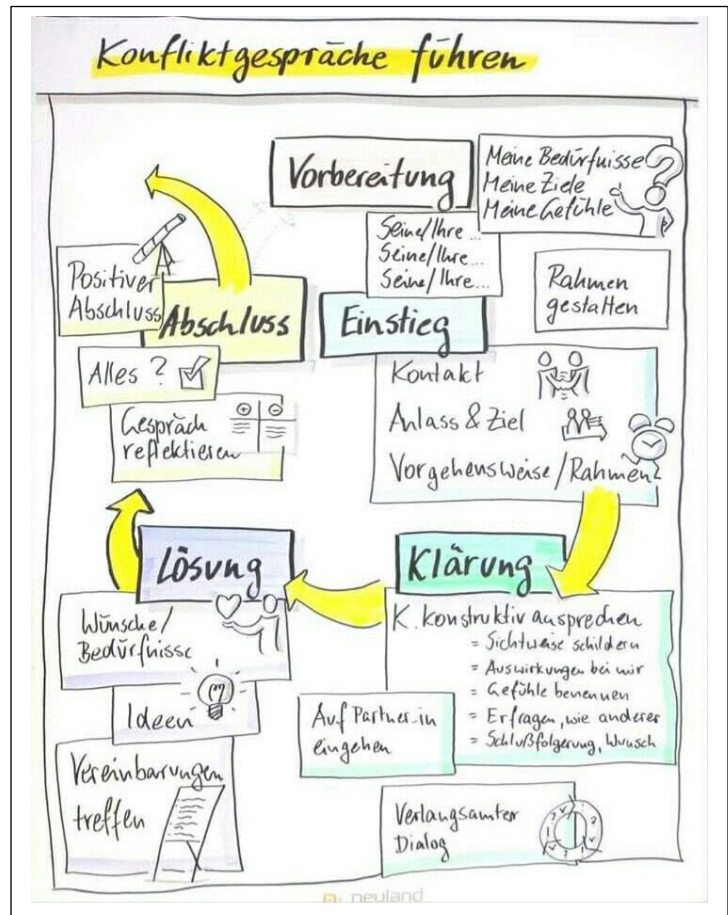 Konfliktgespräche führen
Vorbereitung
Meine Bedürfnisse
Meine Ziele
Meine Gefühle
Seine/Ihre...
Seine/Ihre...
Seine/Ihre...
Rahmen
gestalten
Einstieg
Kontakt
Anlass & Ziel
Vorgehensweise/Rahmen
Klärung
K. konstruktiv ansprechen
= Sichtweise schildern
= Auswirkungen bei mir
= Gefühle benennen
= Erfragen, wie anderer
= Schlußfolgerung, Wunsch
Auf Partner_in
eingehen
Verlangsamter
Dialog
Lösung
Wünsche/
Bedürfnisse
Ideen
Vereinbarungen
treffen
Abschluss
Gespräch
reflektieren
Alles ?
Positiver
Abschluss
neuland